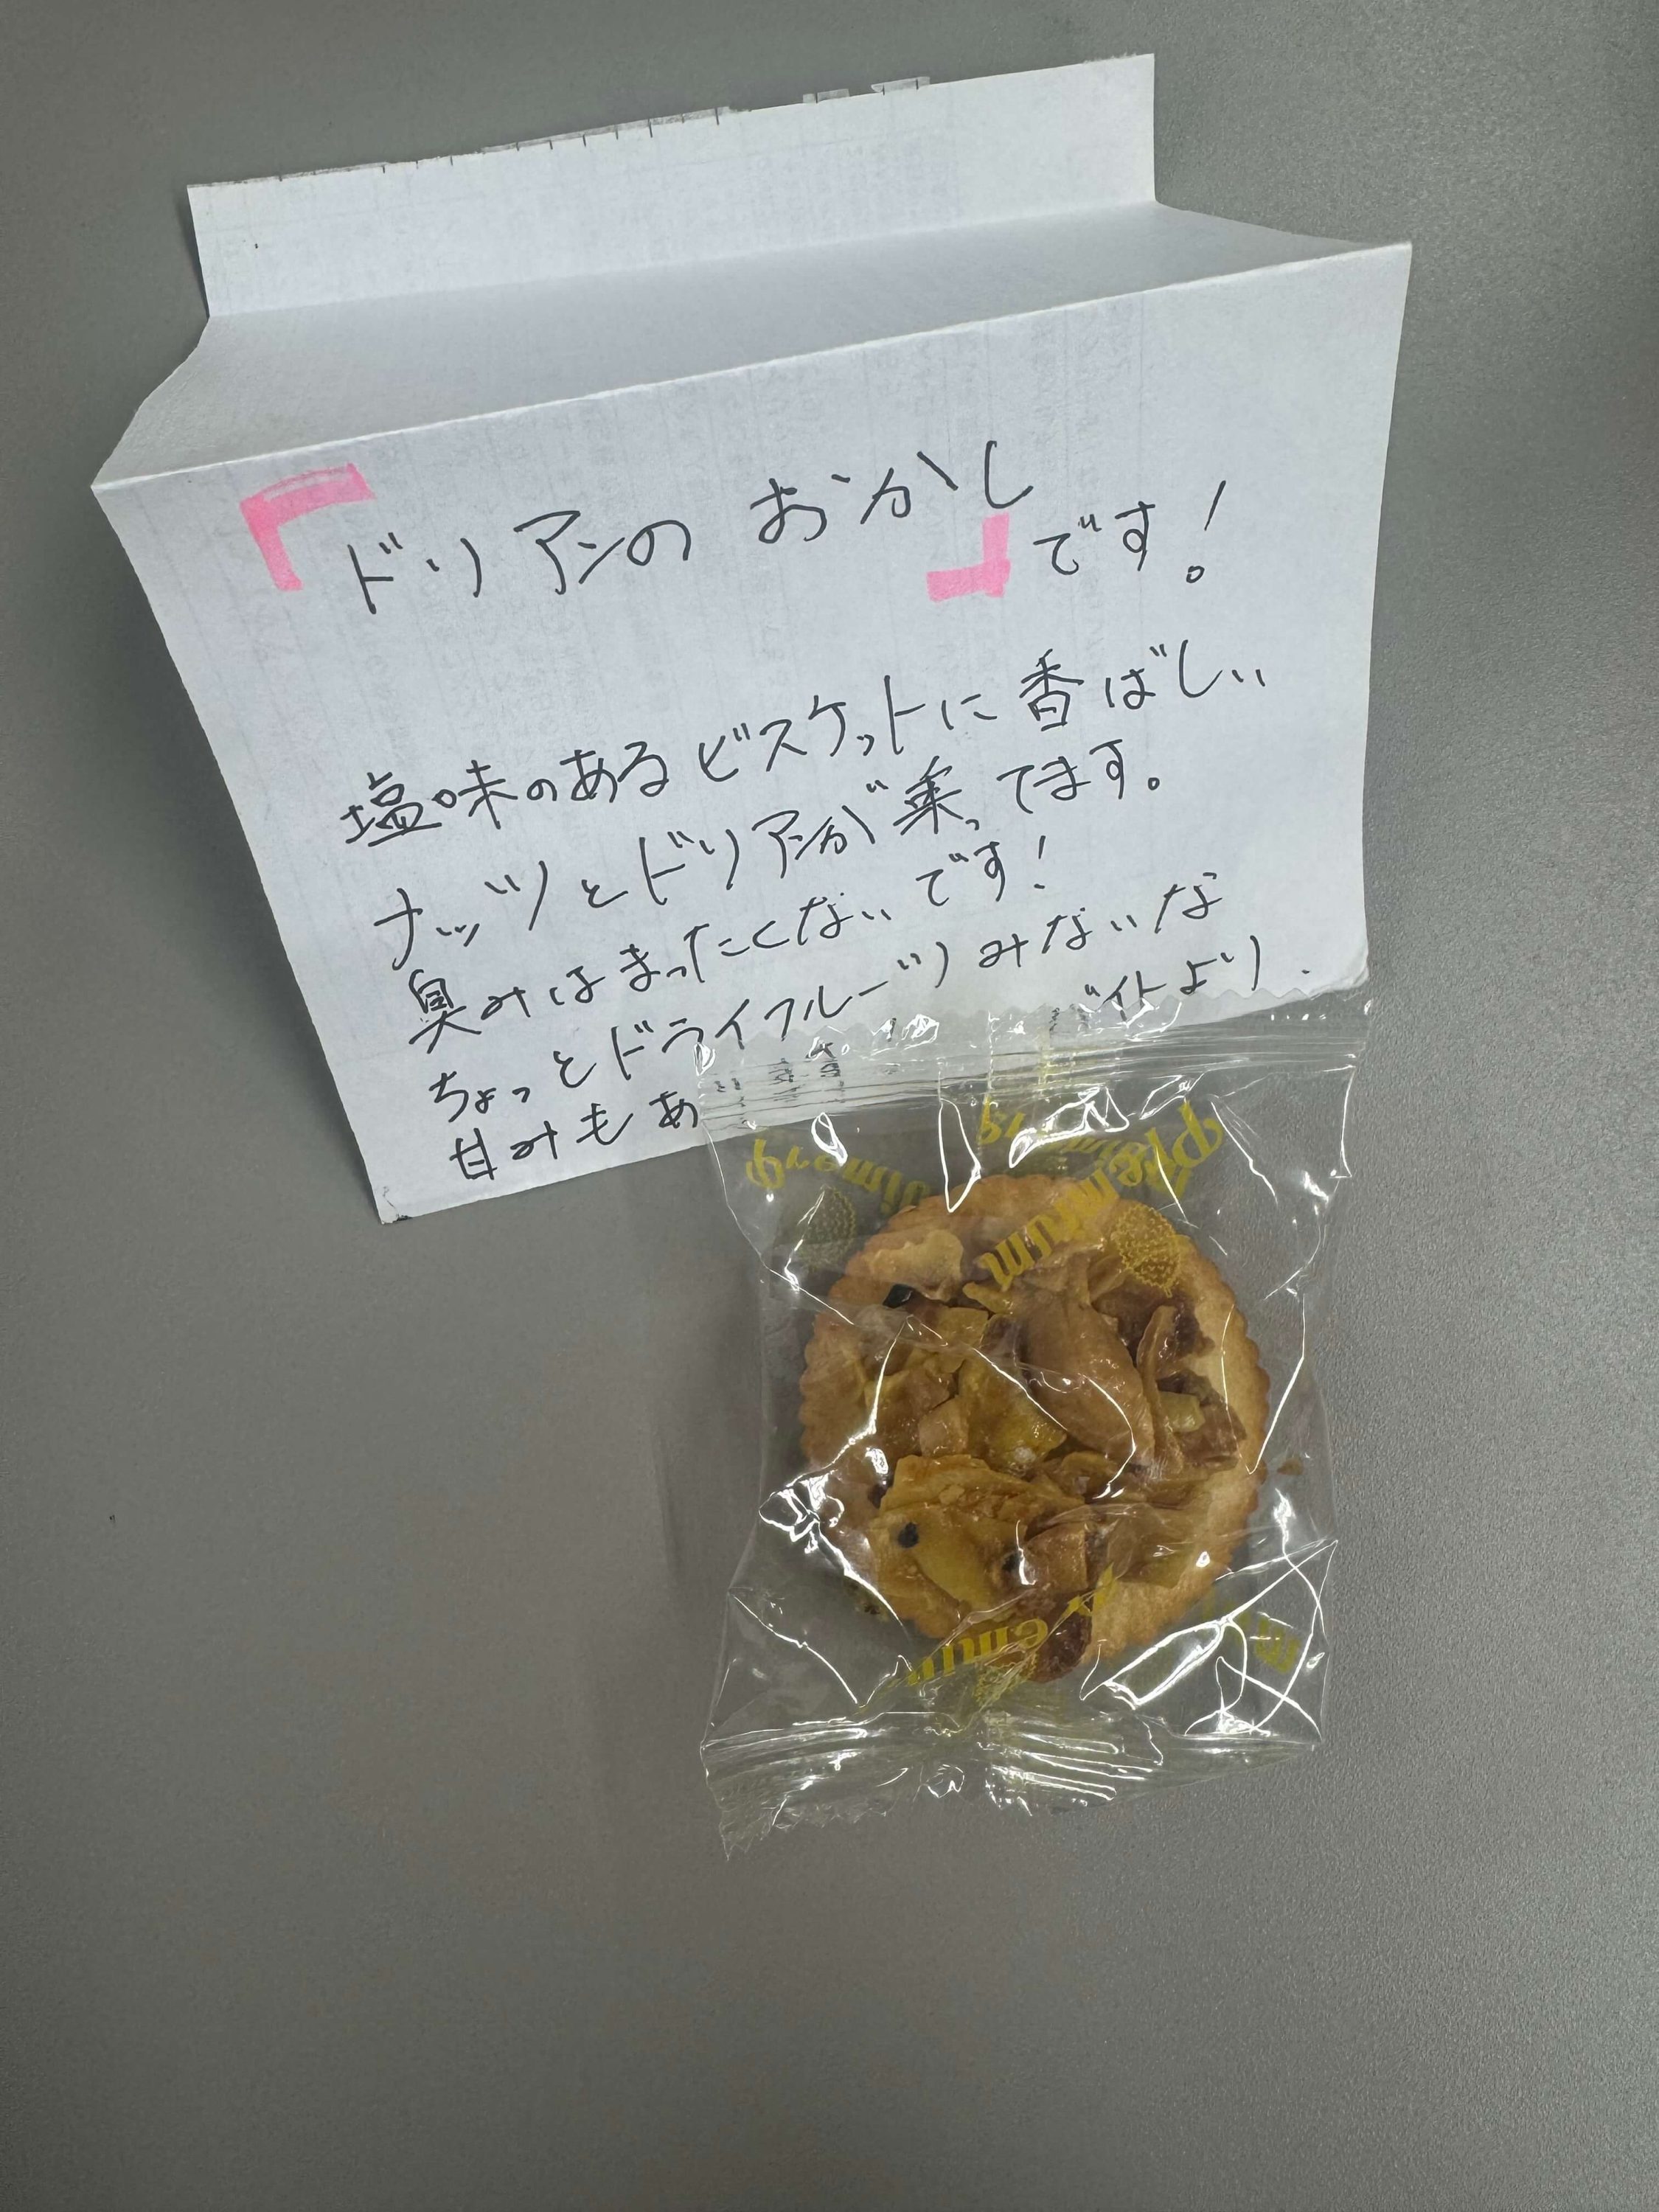 『ドリアンのおかし』です！
塩味のあるビスケットに香ばしい
ナッツとドリアンが乗ってます。
臭みはまったくないです！
ちょっとドライフルーツみないな
甘みもあ
イトより.
Premium
Premium
Premium